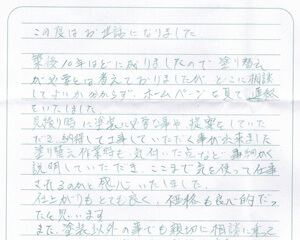 この度はお世話になりました
築後10年ほどになりましたので塗り替え
が必要とは考えておりましたがどこに相談
してよいか分からず、ホームページを見て連絡
をいたしました。
見積り時に塗装に必要な事や提案をしていた
だき納得して工事していただく事が出来ました
塗り替え作業時も気付いた点など事細かく
説明していただき、ここまで気を使って仕事
されるのかと感心いたしました。
仕上がりもとても良く、価格も良心的だっ
たと思います
また、塗装以外の事でも親切に相談に乗って